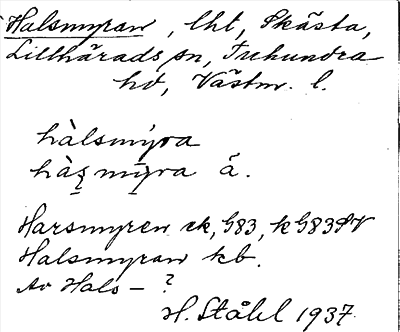 Halsmyran, lht, Skästa,
Lillhärads sn, Tuhundra
hd, Västm. l.
hàlsmýra
hàș mỵra å.
Harsmyren ek, G83, k G83 SV
Halsmyran kb.
Av Hals – ?
H. Ståhl 1937